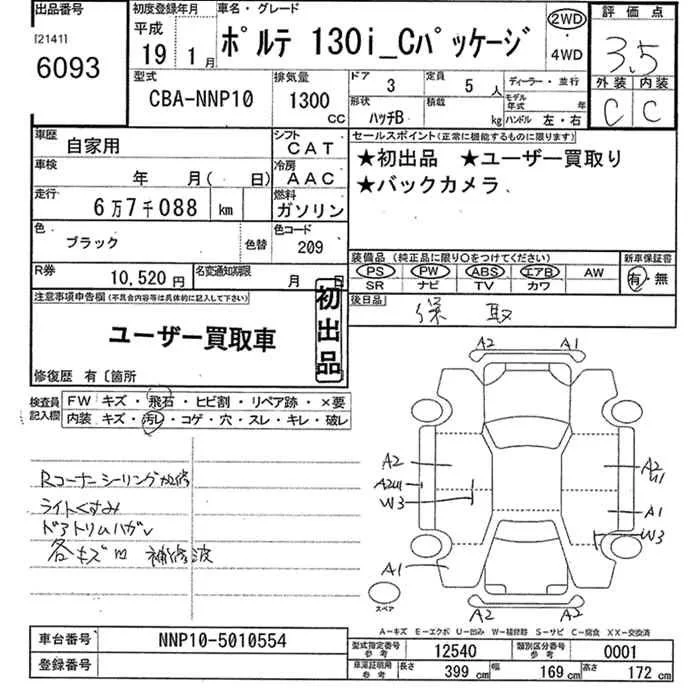 出品番号
[2141]
6093
初度登録年月
平成
19年1月
車名・グレード
ポルテ 130i_Cパッケージ
2WD
・
4WD
評価点
3.5
外装 内装
C C
型式
CBA-NNP10
排気量
1300
CC
ドア
3
定員
5人
ディーラー・並行
形状
ハッチB
積載
kg
モデル年式 年
ハンドル 左・右
車歴
自家用
シフト
CAT
車検
年 月( 日)
冷房
AAC
走行
6万7千088 km
燃料
ガソリン
色
ブラック
色替
色コード
209
R券
10,520円
名変通知期限
月 日
セールスポイント(正常に機能するものに限ります)
★初出品 ★ユーザー買取り
★バックカメラ
装備品 (純正品に限り○をつけてください)
新車保証書
PS PW ABS エアB AW
SR ナビ TV カワ
有・無
後日品
保 取
注意事項申告欄(不具合内容等は具体的に記入して下さい)
ユーザー買取車
初出品
修復歴 有〔箇所
検査員記入欄
FW キズ・飛石・ヒビ割・リペア跡・×要
内装 キズ・汚レ・コゲ・穴・スレ・キレ・破レ
Rコーナーシーリング
ライトくすみ
ドアトリムハガレ
各キズ凹 補修波
A2 A1
A2
A2U1
W3
A2
U1
A1
W3
A1
スペア
A2 A2
A-キズ E-エクボ U-凹み W-補修跡 S-サビ C-腐食 XX-交換済
車台番号
NNP10-5010554
登録番号
型式指定番号
参考
12540
類別区分番号
参考
0001
車庫証明用
参考
長さ
399 cm
幅
169 cm
高さ
172 cm